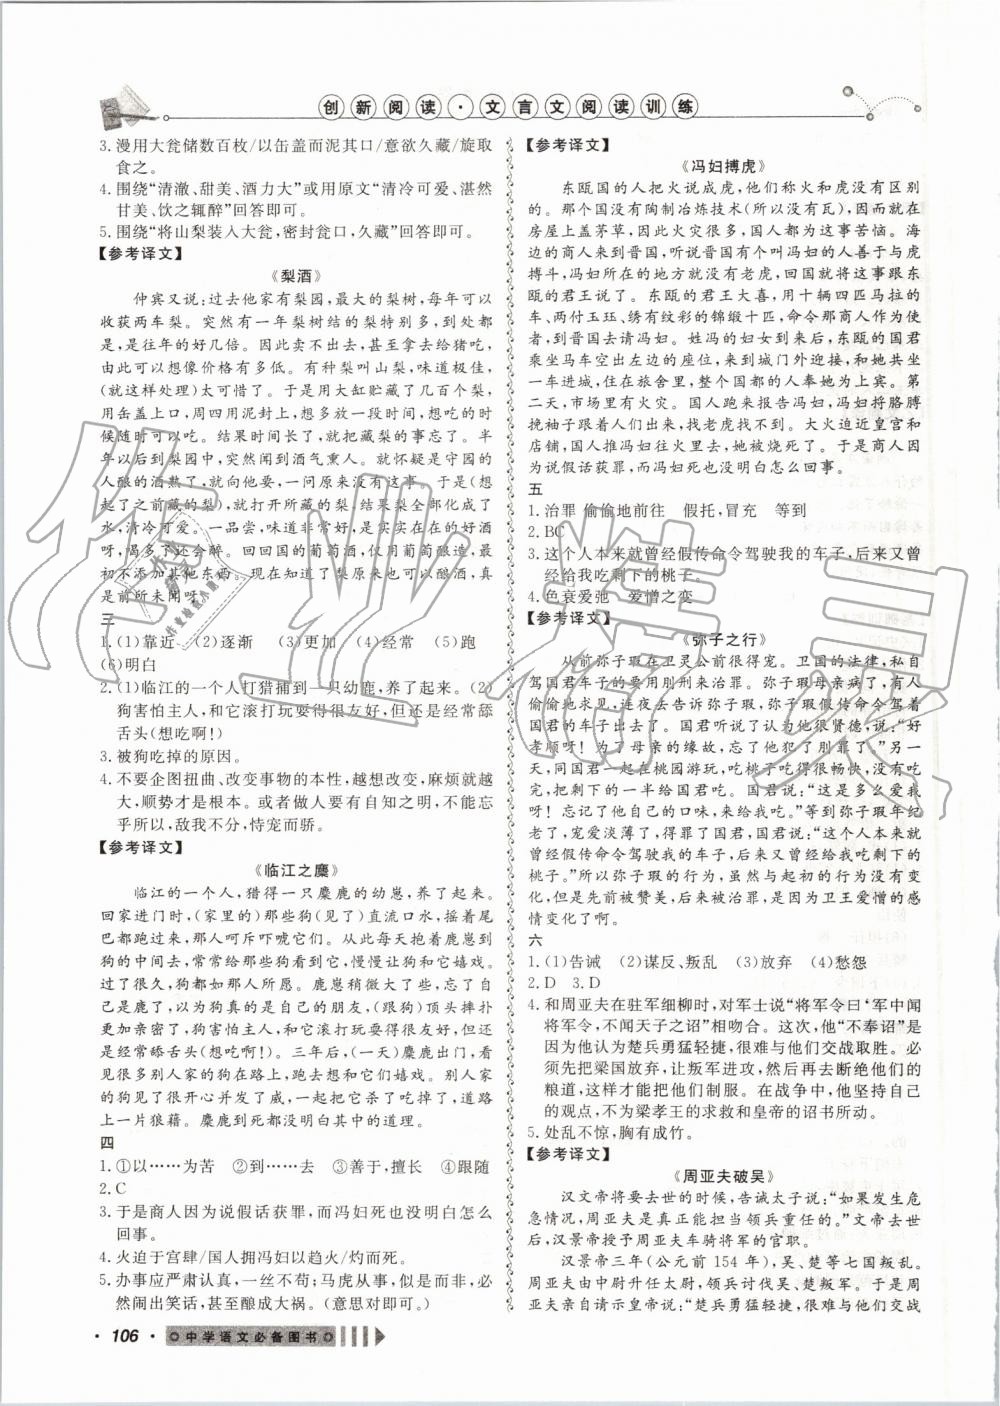 创新阅读·文言文阅读训练
3. 漫用大瓮储数百枚/以缶盖而泥其口/意欲久藏/旋取
食之。
4. 围绕“清澈、甜美、酒力大”或用原文“清冷可爱、湛然
甘美、饮之辄醉”回答即可。
5. 围绕“将山梨装入大瓮,密封瓮口,久藏”回答即可。
【参考译文】
《梨酒》
仲宾又说:过去他家有梨园,最大的梨树,每年可以
收获两车梨。突然有一年梨树结的梨特别多,到处都
是,是往年的好几倍。因此卖不出去,甚至拿去给猪吃,
由此可以想象多么不值钱。有种梨叫山梨,味道极美,
(就这样处理)太可惜了。于是用大缸贮藏了几百个梨,
用缶盖上口,周四用泥封上,想多放一段时间,想吃的时
候随时可以吃。结果时间长了,就把藏梨的事忘了。半
年以后到梨园中,突然闻到酒气熏人。就怀疑是守园的
人酿的酒熟了,就向他要,一问却没有这回事。于是(想
起了之前藏的梨),就打开所藏梨,结果梨全部化成了
水,清冷可爱。一品尝,味道非常好,是实实在在的好酒
呀,喝多了还会醉。回回国的葡萄酒,仅用葡萄酿造,最
初不添加其他东西。现在知道了梨原来也可以酿酒,真
是前所未闻呀。
三
1. (1)靠近 (2)逐渐 (3)更加 (4)经常 (5)跑
(6)明白
2. (1)临江的一个人打猎捕到一只幼鹿,养了起来。(2)
狗害怕主人,和它滚打玩耍得很友好,但还是经常舔
舌头(想吃啊!)
3. 被狗吃掉的原因。
4. 不要企图扭曲、改变事物的本性,越想改变,麻烦就越
大,顺势才是根本。或者做人要有自知之明,不能忘
乎所以,敌我不分,恃宠而骄。
【参考译文】
《临江之麋》
临江的一个人,猎得一只麋鹿的幼崽,养了起来。
回家进门时,(家里的)那些狗(见了)直流口水,摇着尾
巴都跑过来,那人呵斥吓唬它们。从此每天抱着鹿崽到
狗的中间去,常常给狗看它,慢慢让狗和它嬉戏。时间
久了,狗都如那人想的那样。鹿崽稍微大了些,忘了自
己是麋鹿,以为狗真的是自己的朋友,(跟狗)顶撞摔扑
更加亲密了,狗害怕主人,和它滚打玩耍得很友好,但还
是经常舔舌头(想吃啊!)。三年后,(一天)麋鹿出门,看
见很多别人家的狗在路上,跑过去想和它们嬉戏。别家
的狗见了很开心并发了威,一起把它杀了吃掉,道路
上一片狼藉。麋鹿到死都没明白其中的道理。
四
1. ①以……为苦 ②到……去 ③善于,擅长 ④跟随
2. C
3. 于是商人因为说假话获罪,而冯妇死也没明白怎么
回事。
4. 火迫于宫肆/国人拥冯妇以趋火/灼而死。
5. 办事应严肃认真,一丝不苟;马虎从事,似是而非,必
然闹出笑话,甚至酿成大祸。(意思对即可。)
【参考译文】
《冯妇搏虎》
东瓯国的人把火说成虎,他们称火和虎没有区别
的。那个国没有陶制冶炼技术(所以没有瓦),因此就在
房屋上盖茅草,因此火灾很多,国人都为这事苦恼。海
边的商人来到晋国,听说晋国有个叫冯妇的人善于与虎
搏斗,冯妇所在的地方就没有老虎。回国就将这事跟东
瓯的君王说了。东瓯的君王大喜,用十辆四匹马拉的
车、两付玉珏、绣有纹彩的锦缎十匹,命令那商人作为使
者,到晋国去请冯妇。姓冯的妇女到来后,东瓯的国君
乘坐马车空出左边的座位,来到城门外迎接,和她共坐
一车进城,住在国宾馆里,整个国都的人奉她为上宾。第
二天,市场里有火灾。国人跑来报告冯妇,冯妇捋胳膊
挽袖子跟着人们出来,找老虎找不到。大火迫近皇宫和
店铺,国人推冯妇往火里去,她被烧死了。于是商人因
为说假话获罪,而冯妇死也没明白怎么回事。
五
1. 治罪 偷偷地前往 假托,冒充 等到
2. BC
3. 这个人本来就曾经假传命令驾驶我的车子,后来又曾
经给我吃剩下的桃子。
4. 色衰爱弛 爱憎之变
【参考译文】
《弥子之行》
从前弥子瑕在卫灵公前很得宠。卫国的法律,私自
驾国君车子的要用刖刑来治罪。弥子瑕母亲病了,有人
偷偷地求见,连夜去告诉弥子瑕,弥子瑕假传命令驾着
国君的车子出去了。国君听说了认为他很贤德,说:“好
孝顺呀!为了母亲的缘故,忘了犯了刖罪了。”另一
天,同国君一起在桃园游玩,吃桃子吃得很畅快,没有吃
完,把剩下的一半给国君吃。国君说:“这是多么爱我
呀!忘记了他自己的口味,来给我吃。”等到弥子瑕年纪
老了,宠爱淡薄了,得罪了国君,国君说:“这个人本来就
曾经假传命令驾驶我的车子,后来又曾经给我吃剩下的
桃子。”所以弥子瑕的行为,虽然与起初的行为没有变
化,但是先前被赞美,后来获罪,是因为卫王爱憎的感
情变化了啊。
六
1. (1)告诫 (2)谋反、叛乱 (3)放弃 (4)愁怨
2. D 3. D
4. 和周亚夫在驻军细柳时,对军士说“将军令曰‘军中闻
将军令,不闻天子之诏”相吻合。这次,他“不奉诏”是
因为楚兵勇猛轻捷,很难与他们交战取胜。必
须先把梁国放弃,让叛军进攻,然后再去断绝他们的
粮道,这样才可以把他们制服。在战争中,他坚持自己
的观点,不为梁孝王的求救和皇帝的诏书所动。
5. 处乱不惊,胸有成竹。
【参考译文】
《周亚夫破吴》
汉文帝将要去世的时候,告诫太子说:“如果发生危
急情况,周亚夫是真正能担当领兵重任的。”文帝去世
后,汉景帝授予周亚夫车骑将军的官职。
汉景帝三年(公元前154年),吴、楚等七国叛乱。
周亚夫由中尉升任太尉,领兵讨伐吴、楚叛军。于是周
亚夫亲自请示皇帝说:“楚兵勇猛轻捷,很难与他们交战
·106· 中学语文必备图书